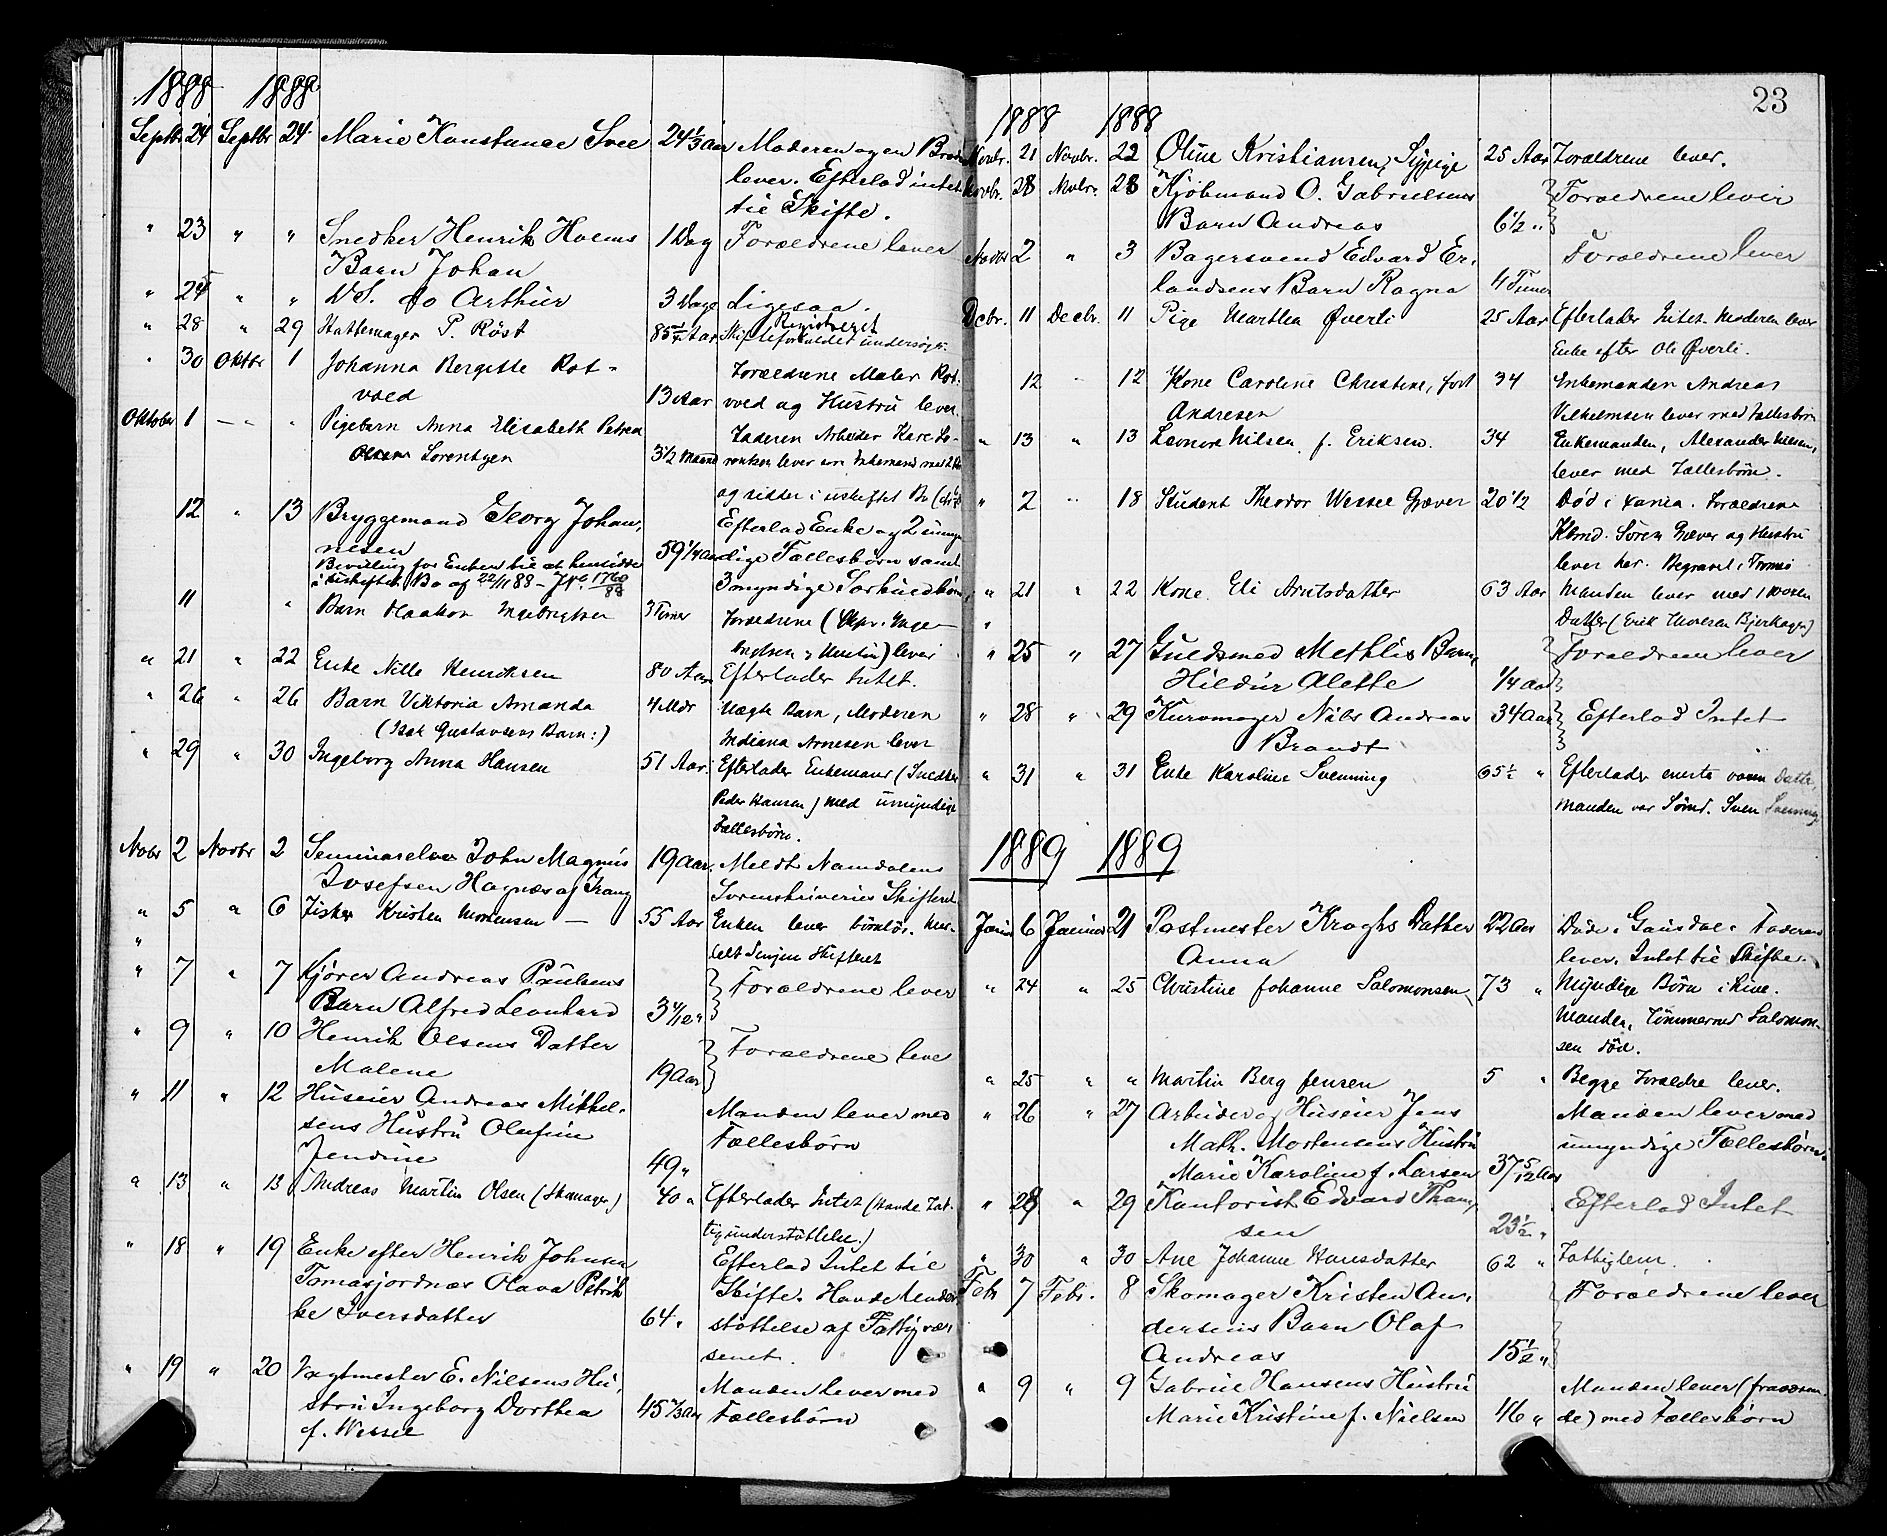 1888 1888
Septbr 24 Septbr 24 Marie Konstanse Svee 24 1/3 Aar Moderen og en Broder
lever. Efterlod intet
til Skifte.
" 23 " " Snedker Henrik Hoems 1 Dag Forældrene lever
Barn Johan
" 25 " " DS. do Arthur 3 Dage Ligesaa.
" 28 " 29 Hattemager P. Röst 85 Aar Registreret
Skifteforholdet undersøges.
" 30 Oktbr 1 Johanna Bergitte Rot- Forældrene Maler Rot-
vold 13 Aar vold og Hustru lever.
Oktober 1 — " " Pigebarn Anna Elisabeth Petrea Faderen Arbeider
Sorentzen 3 1/2 Maaned lever som Enkemand med
og sidder i uskiftet Bo
12 " 13 Bryggemand Georg Johan- Efterlod Enke og 2 umyn-
nesen 59 1/4 Aar dige Fællesbørn samt
Bevilling for Enken til at hensidde 3 myndige Særkuldbørn
i uskiftet Bo af 22/11 88 – J No 1760/88
11 " Barn Haakon Ingebrigtsen 3 Timer Forældrene (Skpr. Inge-
brigtsen & Hustru) lever
" 21 " 22 Enke Nille Henriksen 80 Aar Efterlader Intet.
" 26 " 26 Barn Viktoria Amanda 4 Mdr Uægte Barn, Moderen
(Isak Gustavsens Barn:) Indiana Arnesen lever
" 29 " 30 Ingeborg Anna Hansen 51 Aar. Efterlader Enkemand (Snedker
Peder Hansen) med umyndige
Fællesbørn.
Novbr 2 Novbr 2 Seminarelev John Magnus 19 Aar. Meldt Namdalens
Josefsen Hagnæs af Sorenskriveries Skifteret
" 5 " 6 Fisker Kristen Mortensen — 55 Aar Enken lever børnløs. Med-
" delt Senjen Skifteret
" 7 " 7 Kjører Andreas Paulsens } Forældrene lever
Barn Alfred Leonhard 3 4/12 "
" 9 " 10 Henrik Olsens Datter } Forældrene leve
Malene 19 Aar
" 11 " 12 Huseier Andreas Mikkel- Manden lever med
sens Hustru Olufine Fællesbørn
Jendine 49 "
" 13 " 13 Andreas Martin Olsen (Skomager) 40 " Efterlader Intet (Havde Fat-
tigunderstøttelse.)
" 18 " 19 Enke efter Henrik Johnsen Efterlod Intet til
Tomasjordnæs Olava Petrik- Skifte. Havde Under-
ke Iversdatter 64 " støttelse af Fattigvæs-
senet.
" 19 " 20 Vagtmester E. Nilsens Hu- Manden lever med
stru Ingeborg Dorthea 45 2/3 Aar Fællesbørn
f. Wessel
23
1888 1888
Novbr. 21 Novbr. 22 Oline Kristiansen, Sypige 25 Aar Forældrene lever.
Novbr. 28 Novbr. 28 Kjøbmand O. Gabrielsens } Forældrene lever
Barn Andreas 6 1/2 "
2 " 3 Bagersvend Edvard Er- Forældrene lever
landsens Barn Ragna 4 Timer
Dcbr. 11 Decbr. 11 Pige Martha Øverli 25 Aar Efterlader Intet. Moderen lever
Enke efter Ole Øverli.
12 " 12 Kone Caroline Christine, født 34 Enkemanden Andreas
Andresen Vilhelmsen lever med Fællesbørn
" 13 " 13 Leonora Nilsen f. Eriksen. 34 Enkemanden, Alexander Nilsen,
lever med Fællesbørn.
" 2 " 18 Student Theodor Wessel Græver 20 1/2 Død i Xania. Forældrene
Kbmd. Søren Græver og Hustru
lever her. Begravet i Tromsø
" 21 " 22 Kone Eli Arntsdatter 63 Aar Manden lever med 1 voxen
" Datter (Erik Thoresen Bjerkager)
" 25 " 27 Guldsmed Methlis Barn, } Forældrene lever
Hildur Alette 1/4 Aar
" 28 " 29 Kuromager Nils Andreas 34 Aar } Efterlod Intet
Brandt
" 31 " 31 Enke Karoline Svenning 65 1/2 " Efterlader eneste voxen Datter,
manden var Sømd. Sven Svenning
1889 1889
Januar 6 Januar 21 Postmester Kroghs Datter 22 Aar Døde i Gausdal. Faderen
Anna lever. Intet til Skifte.
" 24 " 25 Christine Johanne Salomonsen 73 " Myndige Børn i Live.
Manden, Tømmermd Salomon-
sen død.
" 25 " " Martin Berg Jensen 5 " Begge Forældre lever.
" 26 " 27 Arbeider og Huseier Jens Manden lever med
Math. Mortensens Hustru umyndige Fællesbørn.
Marie Karoline f. Larsen 37 5/12 Aar
" 28 " 29 Kontorist Edvard Efterlod Intet
sen 23 1/2 "
" 30 " 30 Ane Johanne Hansdatter 62 " Fattiglem.
Febr 7 Febr. 8 Skomager Kristen An- } Forældrene lever
dersens Barn Olaf
Andreas 15 1/2 "
" 9 " 9 Gabriel Hansens Hustru Manden lever (fraværen-
Marie Kristine f. Nielsen 46 " de) med Fællesbørn